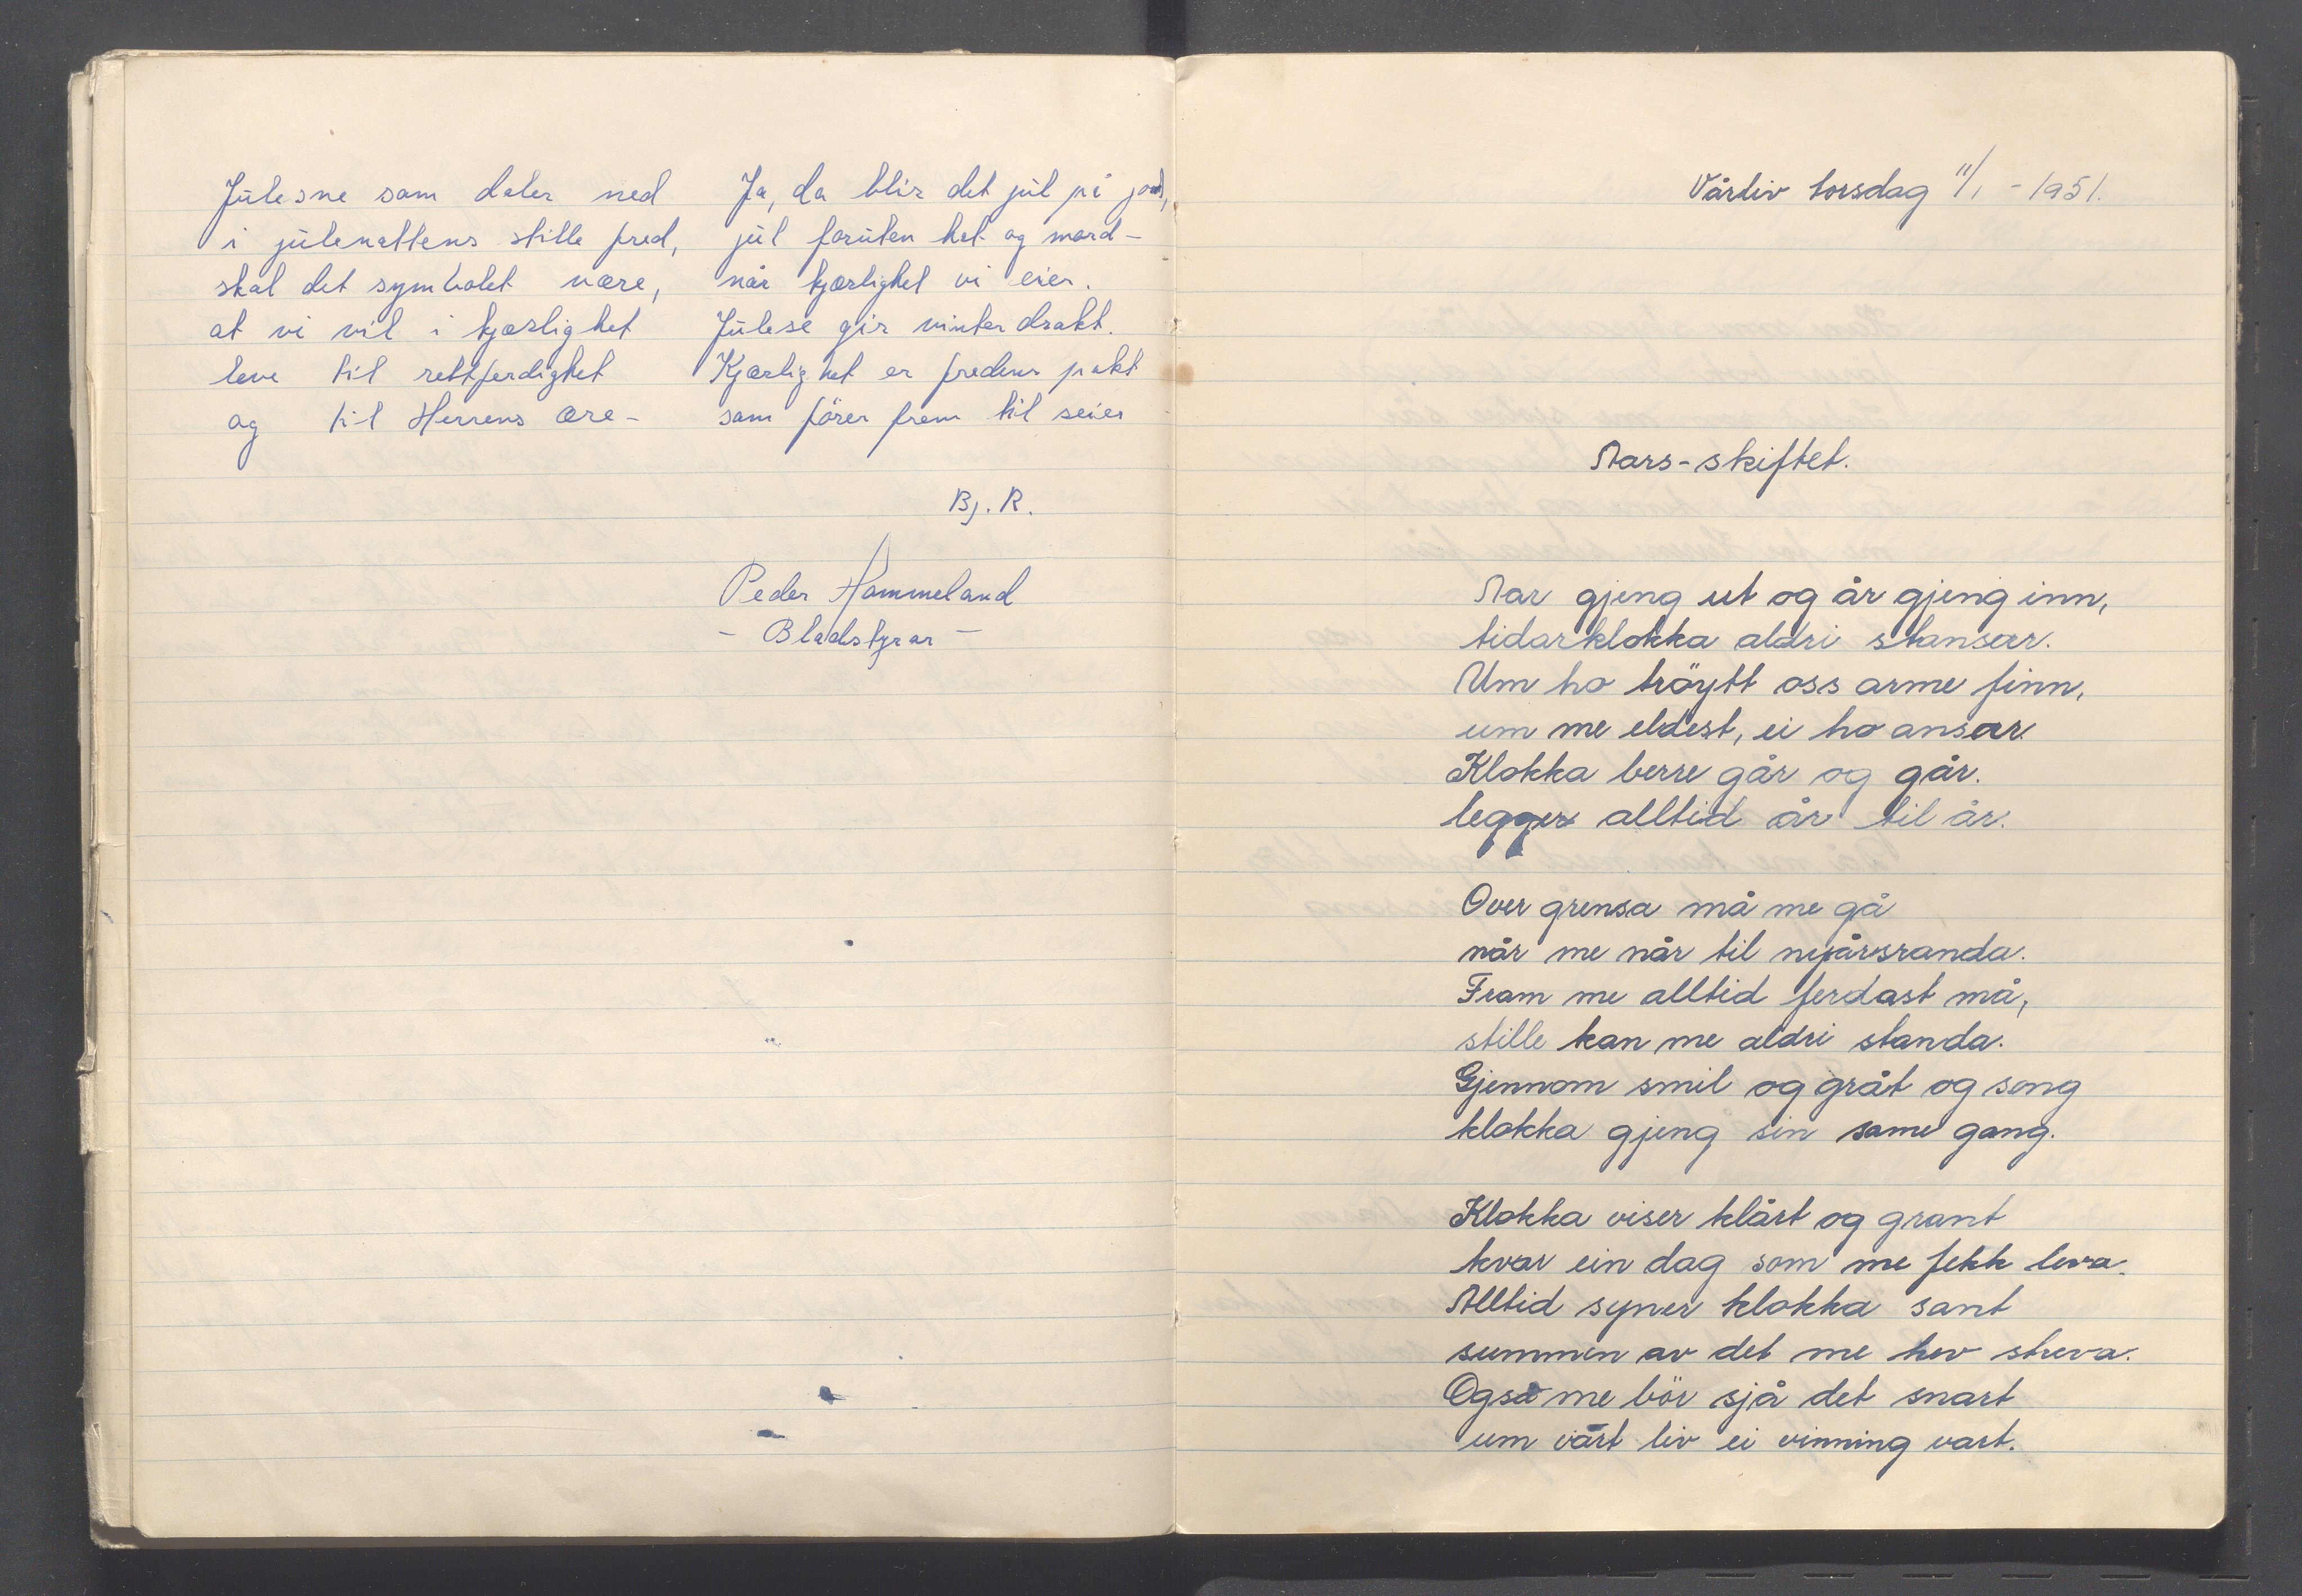 Julesne som daler ned
i julenattens stille fred,
skal det symbolet være,
at vi vil i kjærlighet
leve til rettferdighet
og til Herrens ære -
Ja, da blir det jul på jord,
jul foruten hat og mord -
når kjærlighet vi eier.
Julese gir vinterdrakt.
Kjærlighet er fredens pakt
som förer frem til seier
Bj. R.
Peder Hammeland
- Bladstyrar -
Vårliv torsdag 11/1 - 1951.
Aars-skiftet.
Aar gjeng ut og år gjeng inn,
tidarklokka aldri stansar.
Um ho tröytt oss arme finn,
um me eldest, ei ho ansar.
Klokka berre går og går.
legger alltid år til år.
Over grensa må me gå
når me når til nyårsranda.
Fram me alltid ferdast må,
stille kan me aldri standa.
Gjennom smil og gråt og song
klokka gjeng sin same gang.
Klokka viser klårt og grant
kvar ein dag som me fekk leva.
Alltid syner klokka sant
summen av det me hev streva.
Også me bör sjå det snart
um vårt liv ei vinning vart.